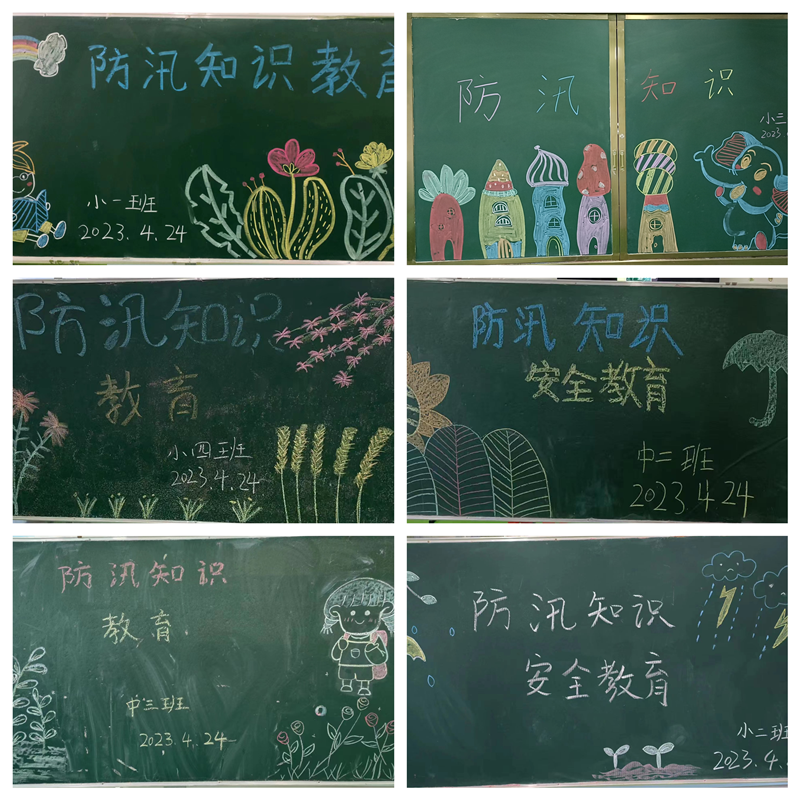 防汛知识教育
小一班
2023.4.24
防汛知识
小三
2023.
防汛知识
教育
小四班
2023.4.24
防汛知识
安全教育
中二班
2023.4.24
防汛知识
教育
中三班
2023.4.24
防汛知识
安全教育
小二班
2023.4.